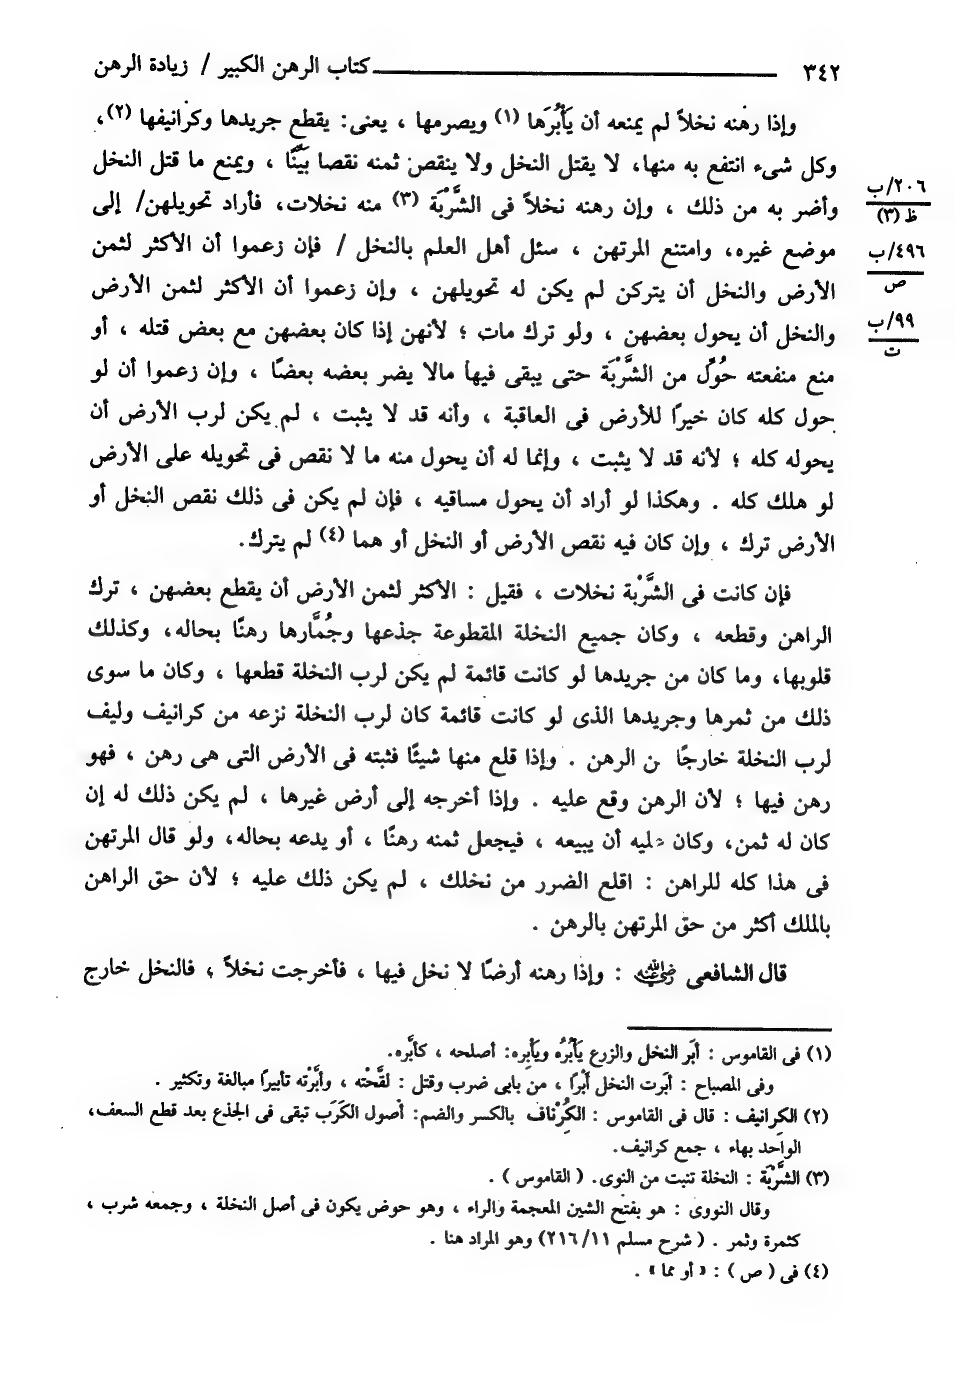 ٣٤٢ ــــــــــــــــــــ كتاب الرهن الكبير / زيادة الرهن
وإذا رهنه نخلاً لم يمنعه أن يَأْبُرَها (١) ويصرمها ، يعنى: يقطع جريدها وكرانيفها (٢)،
وكل شىء انتفع به منها، لا يقتل النخل ولا ينقص ثمنه نقصا بَيِّنًا ، ويمنع ما قتل النخل
وأضر به من ذلك ، وإن رهنه نخلاً فى الشَّرْبَة (٣) منه نخلات، فأراد تحويلهن/ إلى
٢٠٦/ب
ظ (٣)
موضع غيره، وامتنع المرتهن ، سئل أهل العلم بالنخل / فإن زعموا أن الأكثر لثمن
٤٩٦/ب
ص
الأرض والنخل أن يتركن لم يكن له تحويلهن ، وإن زعموا أن الأكثر لثمن الأرض
والنخل أن يحول بعضهن ، ولو ترك مات ؛ لأنهن إذا كان بعضهن مع بعض قتله ، أو
٩٩/ب
ت
منع منفعته حُوِّل من الشَّرْبَة حتى يبقى فيها مالا يضر بعضه بعضًا ، وإن زعموا أن لو
حول كله كان خيرًا للأرض فى العاقبة ، وأنه قد لا يثبت ، لم يكن لرب الأرض أن
يحوله كله ؛ لأنه قد لا يثبت ، وإنما له أن يحول منه ما لا نقص فى تحويله على الأرض
لو هلك كله . وهكذا لو أراد أن يحول مساقيه ، فإن لم يكن فى ذلك نقص النخل أو
الأرض ترك ، وإن كان فيه نقص الأرض أو النخل أو هما (٤) لم يترك.
فإن كانت فى الشَّرْبة نخلات ، فقيل : الأكثر لثمن الأرض أن يقطع بعضهن ، ترك
الراهن وقطعه ، وكان جميع النخلة المقطوعة جذعها وجُمَّارها رهنًا بحاله، وكذلك
قلوبها، وما كان من جريدها لو كانت قائمة لم يكن لرب النخلة قطعها ، وكان ما سوى
ذلك من ثمرها وجريدها الذى لو كانت قائمة كان لرب النخلة نزعه من كرانيف وليف
لرب النخلة خارجًا ن الرهن . وإذا قلع منها شيئًا فثبته فى الأرض التى هى رهن ، فهو
رهن فيها ؛ لأن الرهن وقع عليه . وإذا أخرجه إلى أرض غيرها ، لم يكن ذلك له إن
كان له ثمن، وكان عليه أن يبيعه ، فيجعل ثمنه رهنًا ، أو يدعه بحاله، ولو قال المرتهن
فى هذا كله للراهن : اقلع الضرر من نخلك ، لم يكن ذلك عليه ؛ لأن حق الراهن
بالملك أكثر من حق المرتهن بالرهن .
قال الشافعى رضي الله عنه : وإذا رهنه أرضًا لا نخل فيها ، فأخرجت نخلاً ؛ فالنخل خارج
(١) فى القاموس : أَبَر النخل والزرع يَأْبُرُه ويَأْبِره: أصلحه ، كأَبَّره.
وفى المصباح : أبَرت النخل أَبْرًا ، من بابى ضرب وقتل : لَقَّحْته ، وأبَّرْته تأبيرًا مبالغة وتكثير .
(٢) الكرانيف : قال فى القاموس : الكُِرْناف بالكسر والضم: أصول الكَرَب تبقى فى الجذع بعد قطع السعف،
الواحد بهاء ، جمع كرانيف.
(٣) الشَّرْبَة : النخلة تنبت من النوى. ( القاموس ) .
وقال النووى : هو بفتح الشين المعجمة والراء ، وهو حوض يكون فى أصل النخلة ، وجمعه شرب ،
كثمرة وثمر . ( شرح مسلم ٢١٦/١١) وهو المراد هنا .
(٤) فى ( ص ) : « أو مما » .